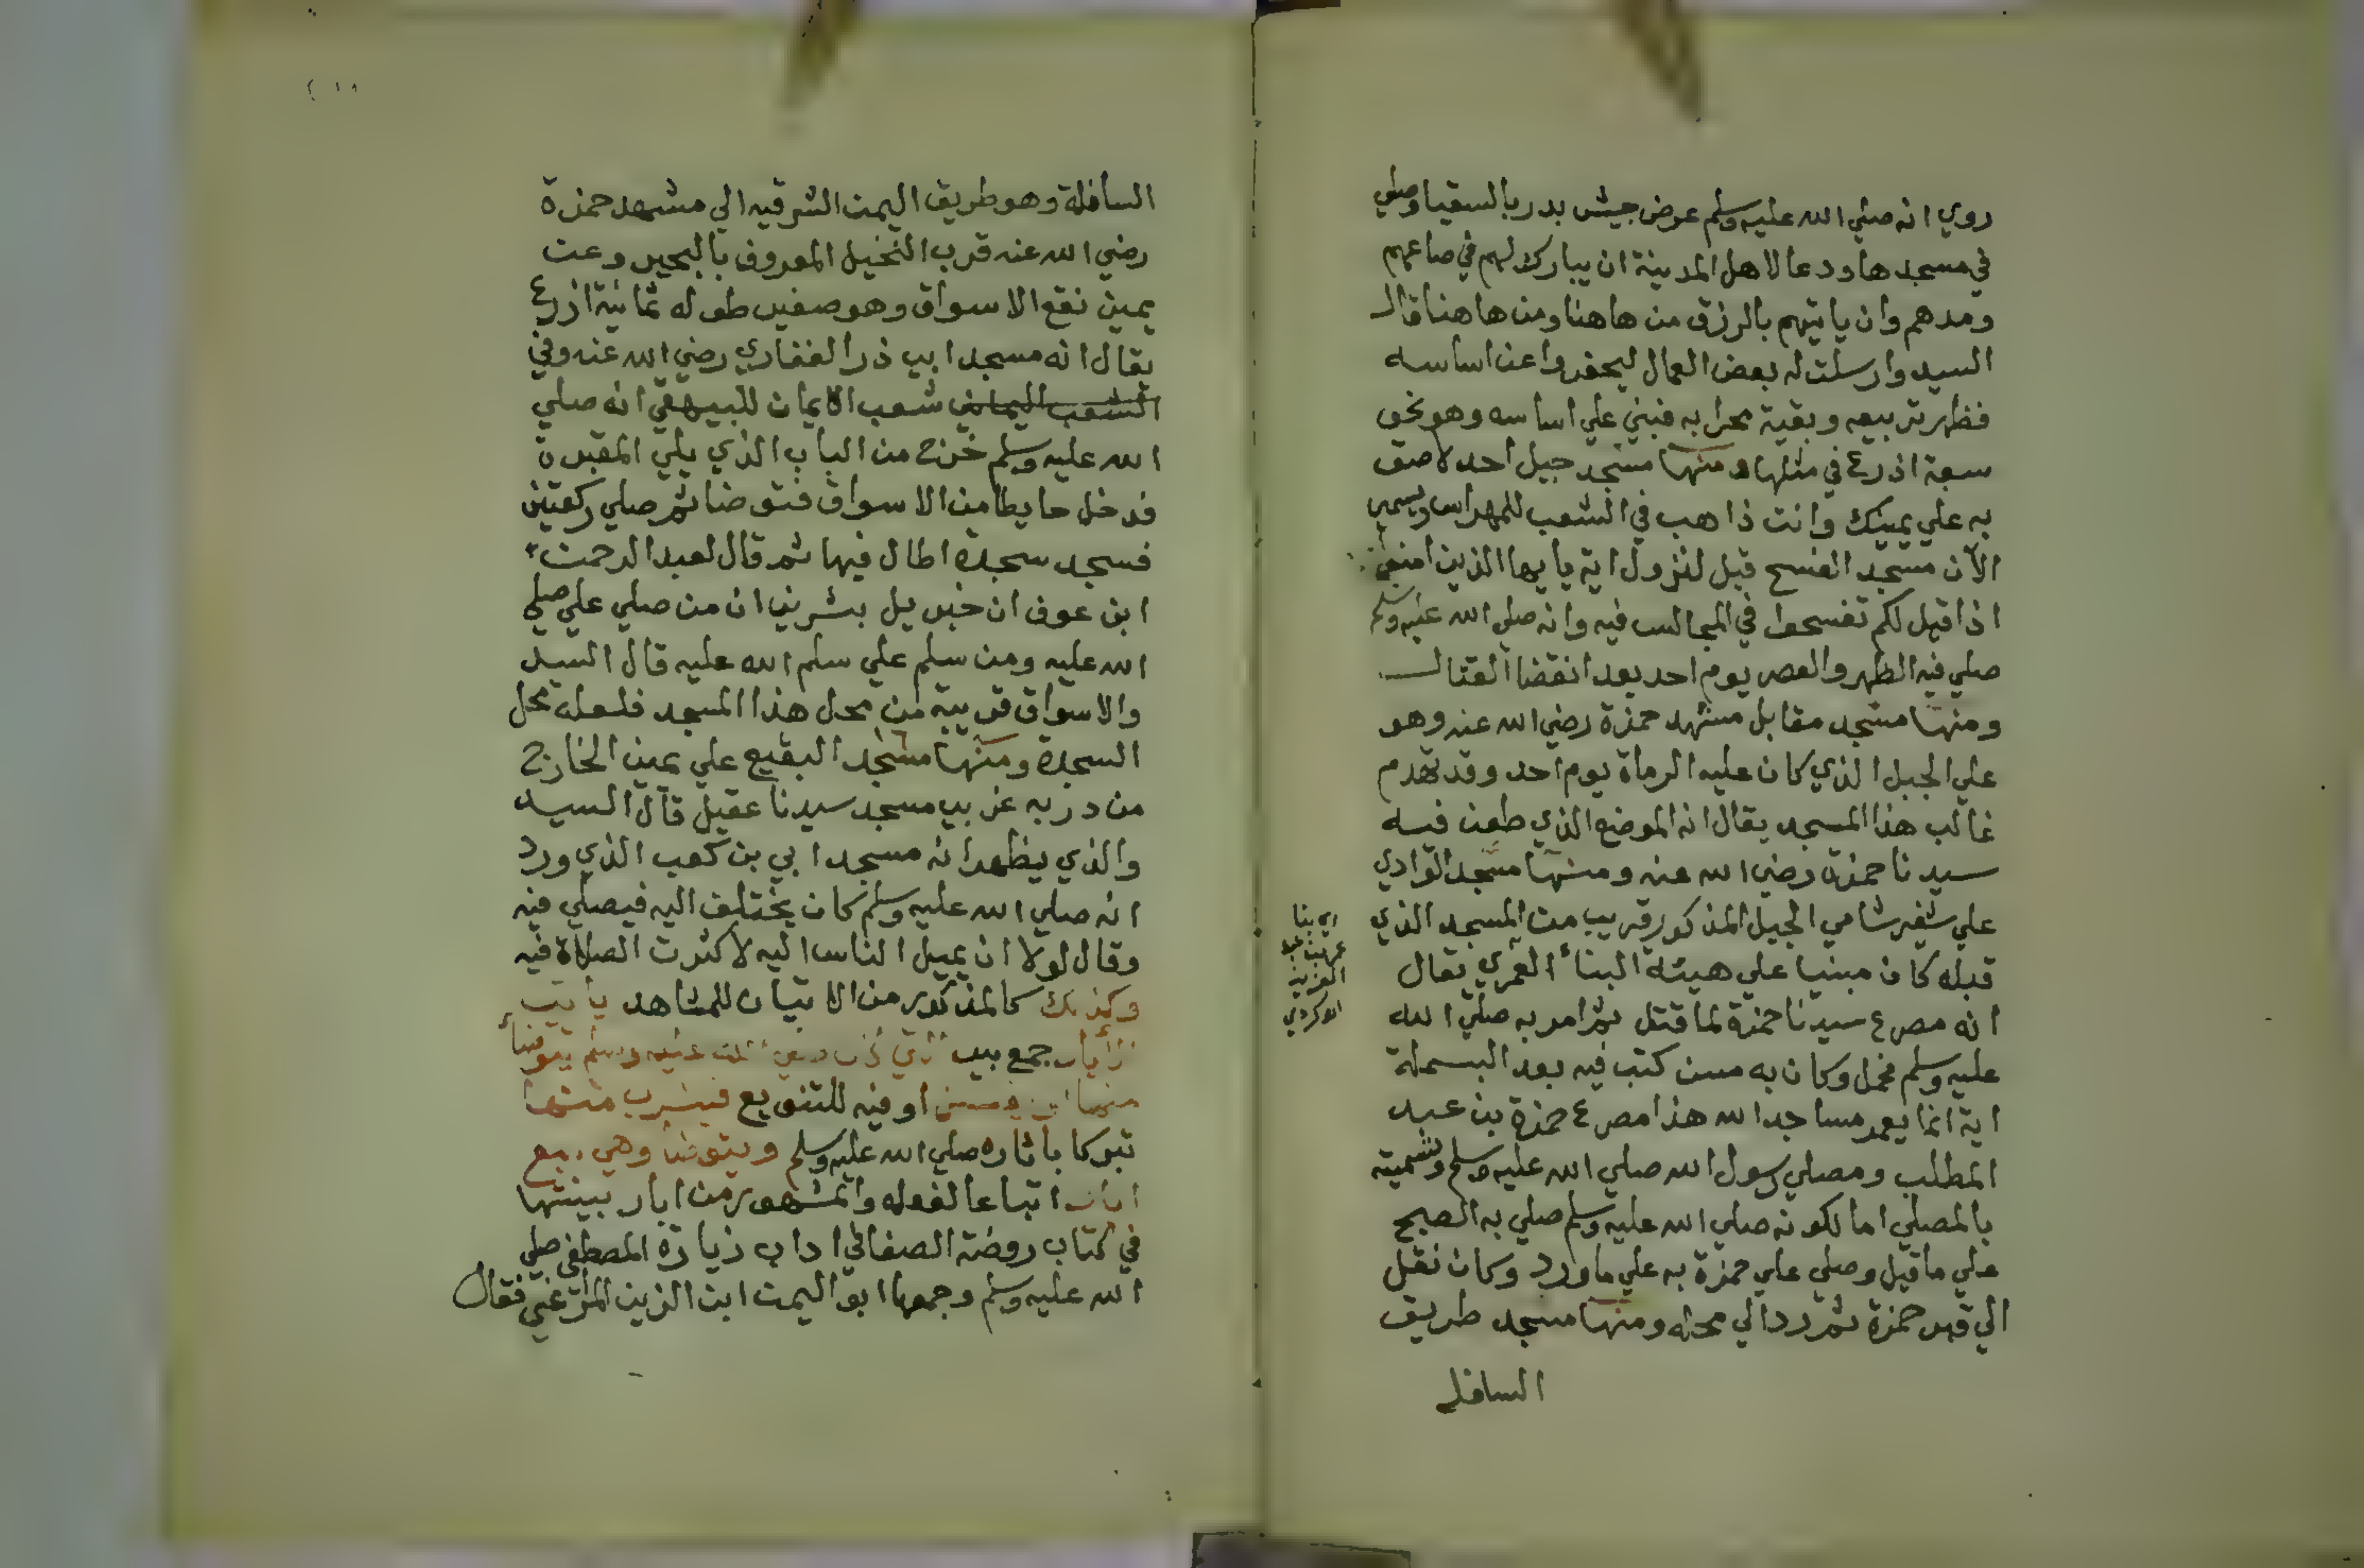 روي انه صلي الله عليه وسلم عرض جيش بدر بالسقيا وصلي
في مسجدها ودعا لاهل المدينة ان يبارك لهم في صاعهم
ومدهم وان ياتيهم بالرزق من هاهنا ومن هاهنا قال
السيد وارسلت له بعض العمال ليحفروا عن اساسه
فظهر تربيعه وبقية محرابه فبني علي اساسه وهو نحو
سبعة اذرع في مثلها ومنها مسجد جبل احد لاصق
به علي يمينك وانت ذاهب في الشعب للمهراس ويسمي
الآن مسجد الفسح قيل لنزول اية يايها الذين امنوا
اذا قيل لكم تفسحوا في المجالس فيه وانه صلي الله عليه وسلم
صلي فيه الظهر والعصر يوم احد بعد انقضا القتال
ومنها مسجد مقابل مشهد حمزة رضي الله عنه وهو
علي الجبل الذي كان عليه الرماة يوم احد وقد تهدم
غالب هذا المسجد يقال انه الموضع الذي طعن فيه
سيدنا حمزة رضي الله عنه ومنها مسجد الوادي
علي شفير شامي الجبل المذكور قريب من المسجد الذي
قبله كان مبنيا علي هيئة البناء العمري يقال
انه مصرع سيدنا حمزة لما قتل ثم امر به صلي الله
عليه وسلم فحمل وكان به مسن كتب فيه بعد البسملة
اية انما يعمر مساجد الله هذا مصرع حمزة بن عبد
المطلب ومصلي رسول الله صلي الله عليه وسلم وتسميته
بالمصلي اما لكونه صلي الله عليه وسلم صلي به الصبح
علي ما قيل وصلي علي حمزة به علي ما ورد وكان نقل
الي قبر حمزة ثم رد الي محله ومنها مسجد طريق
السافله
اي بنا
عمر بن عبد
العزيز
السافلة وهو طريق اليمن الشرقيه الي مشهد حمزة
رضي الله عنه قرب النخيل المعروف بالبحير وعن
يمين نقع الاسواق وهو صغير طوله ثمانية اذرع
يقال انه مسجد ابي ذر الغفاري رضي الله عنه وفي
الشعب اليماني شعب الايمان للبيهقي انه صلي
الله عليه وسلم خرج من الباب الذي يلي المقبرة
فدخل حايطا من الاسواق فتوضا ثم صلي ركعتين
فسجد سجدة اطال فيها ثم قال لعبد الرحمن
ابن عوف ان جبريل بشرني ان من صلي علي صلي
الله عليه ومن سلم علي سلم الله عليه قال السيد
والاسواق قريبة من محل هذا المسجد فلعله محل
السجدة ومنها مسجد البقيع علي يمين الخارج
من دربه غربي مسجد سيدنا عقيل قال السيد
والذي يظهر انه مسجد ابي بن كعب الذي ورد
انه صلي الله عليه وسلم كان يختلف اليه فيصلي فيه
وقال لولا ان يميل الناس اليه لاكثرت الصلاة فيه
وكذلك كالمذكور من الاتيان للمشاهد ياتي
الآبار جمع بير التي كان صلي الله عليه وسلم يتوضأ
منها او يغتسل او فيه للتنويع فيشرب منها
تبركا باثاره صلي الله عليه وسلم ويتوضأ وهي سبع
ابار اتباعا لفعله والمشهور من ابار بينتها
في كتاب روضة الصفا في اداب زيارة المصطفي صلي
الله عليه وسلم وجمعها ابو اليمن ابن الزين المراغي فقال